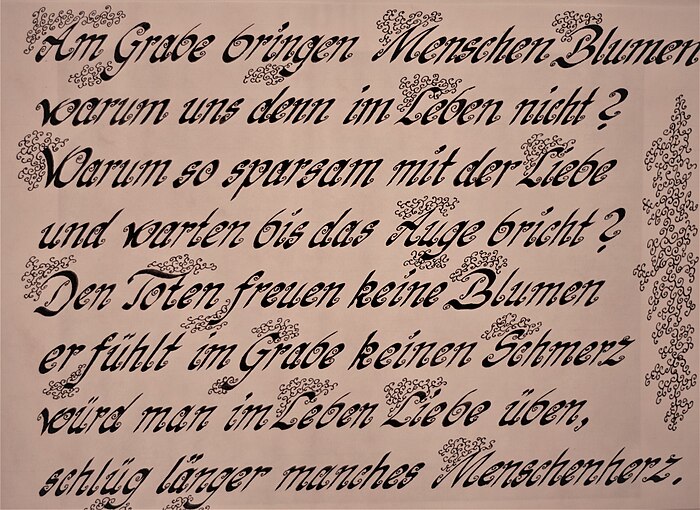 Am Grabe bringen Menschen Blumen
warum uns denn im Leben nicht?
Warum so sparsam mit der Liebe
und warten bis das Auge bricht?
Den Toten freuen keine Blumen
er fühlt im Grabe keinen Schmerz
würd man im Leben Liebe üben,
schlüg länger manches Menschenherz.